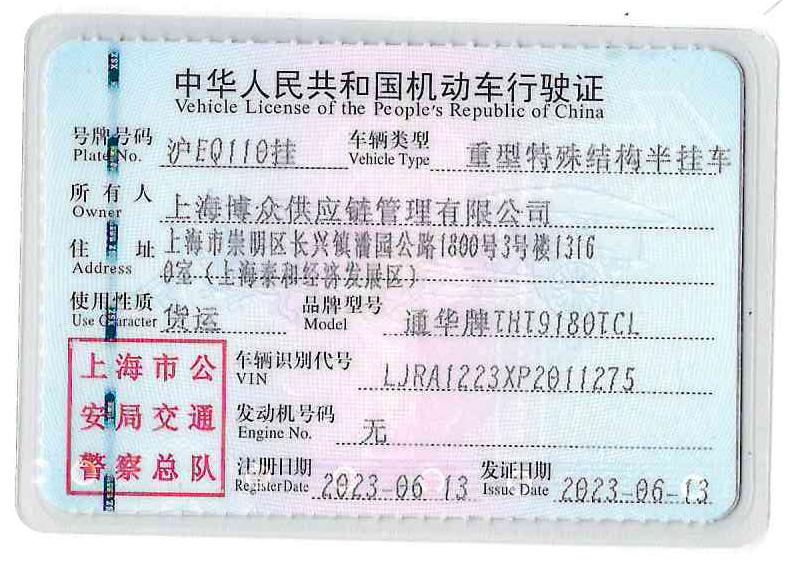 中华人民共和国机动车行驶证
Vehicle License of the People's Republic of China
号牌号码 沪EQ110挂 车辆类型 重型特殊结构半挂车
Plate No. Vehicle Type
所有人 上海博众供应链管理有限公司
Owner
住址 上海市崇明区长兴镇潘园公路1800号3号楼1316
Address 0室（上海泰和经济发展区）
使用性质 货运 品牌型号 通华牌THT9180TCL
Use Character Model
上海市公
安局交通
警察总队
车辆识别代号 LJRA1223XP2011275
VIN
发动机号码 无
Engine No.
注册日期 2023-06-13 发证日期 2023-06-13
Register Date Issue Date